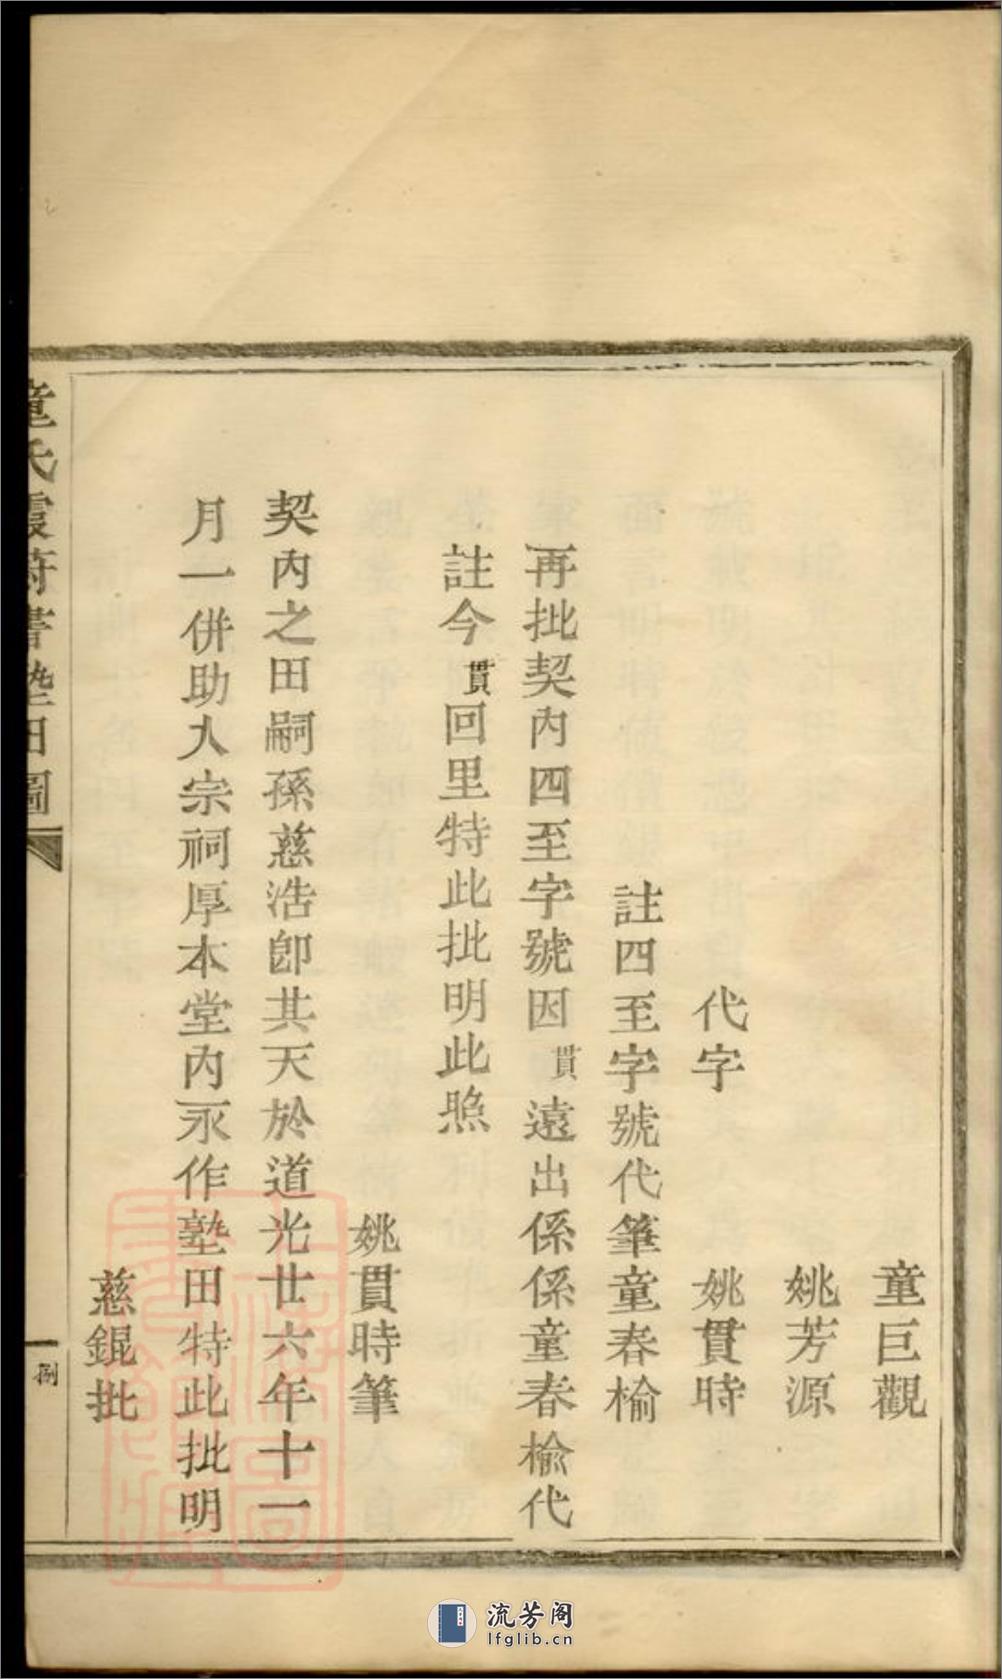 童巨觀
姚芳源
代字　姚貫時
註四至字號代筆童春榆
再批契內四至字號因貫遠出係係童春榆代
註今貫回里特此批明此照
姚貫時筆
契內之田嗣孫慈浩卽其天於道光廿六年十一
月一併助入宗祠厚本堂內永作塾田特此批明
慈錕批
童氏霞蔚書塾田圖
捌
流芳阁
lfglib.cn